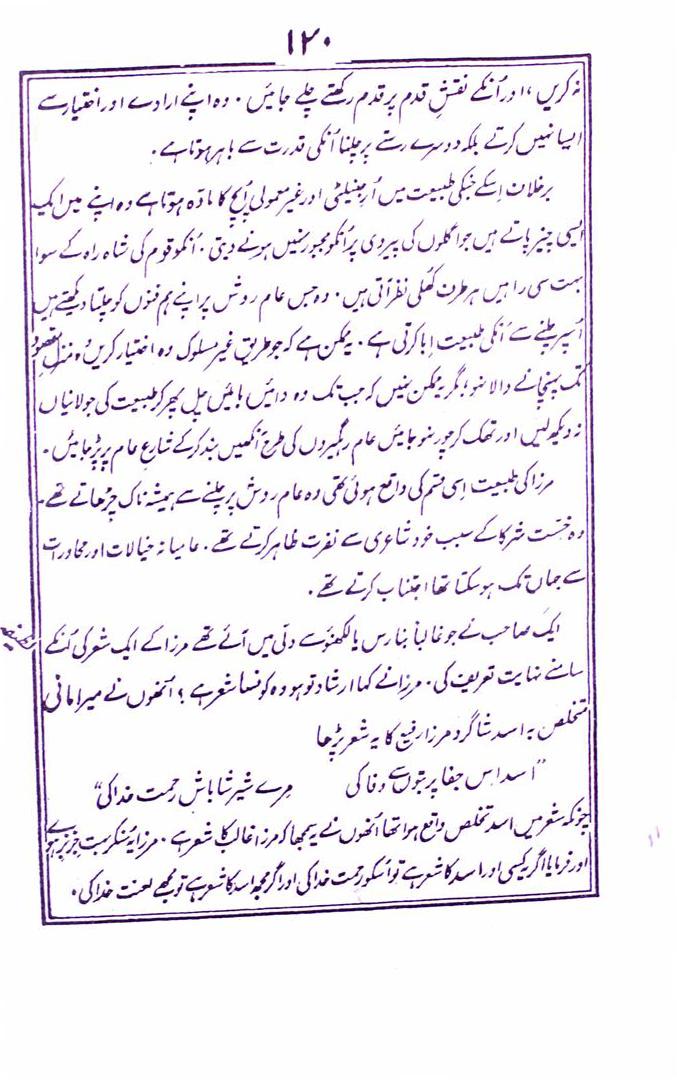 ۱۲۰
نہ کریں، اور اُنکے نقشِ قدم پر قدم رکھتے چلے جائیں۔ وہ اپنے ارادے اور اختیار سے
ایسا نہیں کرتے بلکہ دوسرے رستے پر چلنا اُنکی قدرت سے باہر ہوتا ہے۔
برخلاف اِسکے جنکی طبیعت میں اُرجینیلٹی اور غیر معمولی اُپج کا مادّہ ہوتا ہے وہ اپنے میں ایک
ایسی چیز پاتے ہیں جو اگلوں کی پیروی پر اُنکو مجبور نہیں ہونے دیتی۔ اُنکو قوم کی شاہ راہ کے سوا
بہت سی راہیں ہر طرف کھُلی نظر آتی ہیں۔ وہ جس عام روش پر اپنے ہم فنوں کو چلتا دیکھتے ہیں
اُسپر چلنے سے اُنکی طبیعت اِبا کرتی ہے۔ یہ ممکن ہے کہ جو طریق غیر مسلوک وہ اختیار کریں وہ منزلِ مقصود
تک پہنچانے والا نہو؛ مگر یہ ممکن نہیں کہ جب تک وہ دائیں بائیں چل پھر کر طبیعت کی جولانیاں
نہ دیکھ لیں اور تھک کر چور نہو جائیں عام رہگیروں کی طرح آنکھیں بند کرکے شارع عام پر پڑ جائیں۔
مرزا کی طبیعت اِسی قسم کی واقع ہوئی تھی وہ عام روش پر چلنے سے ہمیشہ ناک چڑھاتے تھے۔
وہ خسّت شرکا کے سبب خود شاعری سے نفرت ظاہر کرتے تھے۔ عامیانہ خیالات اور محاورات
سے جہاں تک ہو سکتا تھا اجتناب کرتے تھے۔
لطیفہ
ایک صاحب نے جو غالباً بنارس یا لکھنؤ سے دلّی میں آئے تھے مرزا کے ایک شعر کی اُنکے
سامنے نہایت تعریف کی۔ مرزا نے کہا ارشاد تو ہو وہ کونسا شعر ہے؟ اُنھوں نے میر امانی
متخلص بہ اسد شاگرد مرزا رفیع کا یہ شعر پڑھا
”اسد اس جفا پر بتوں سے وفا کی مرے شیر شاباش رحمت خدا کی“
چونکہ شعر میں اسد تخلص واقع ہوا تھا اُنھوں نے یہ سمجھا کہ مرزا غالب کا شعر ہے۔ مرزا یہ سُنکر بہت جزبز ہوے
اور فرمایا اگر کسی اور اسد کا شعر ہے تو اُسکو رحمت خدا کی اور اگر مجھ اسد کا شعر ہے تو مجھے لعنت خدا کی۔